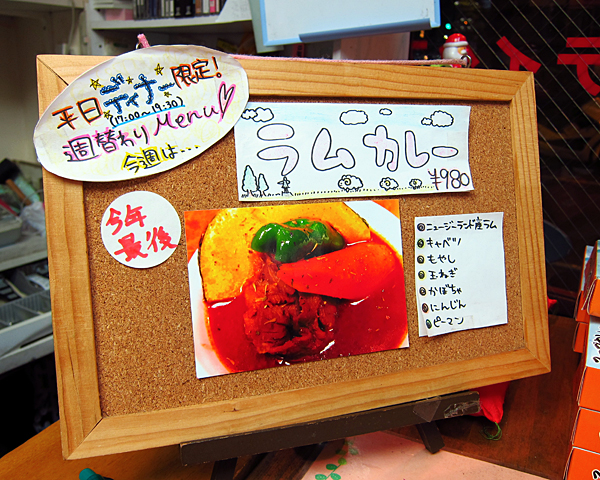 平日ディナー限定！
(17:00～19:30)
週替わりMenu♡
今週は・・・
ラムカレー
¥980
今年
最後
ニュージーランド産ラム
キャベツ
もやし
玉ねぎ
かぼちゃ
にんじん
ピーマン